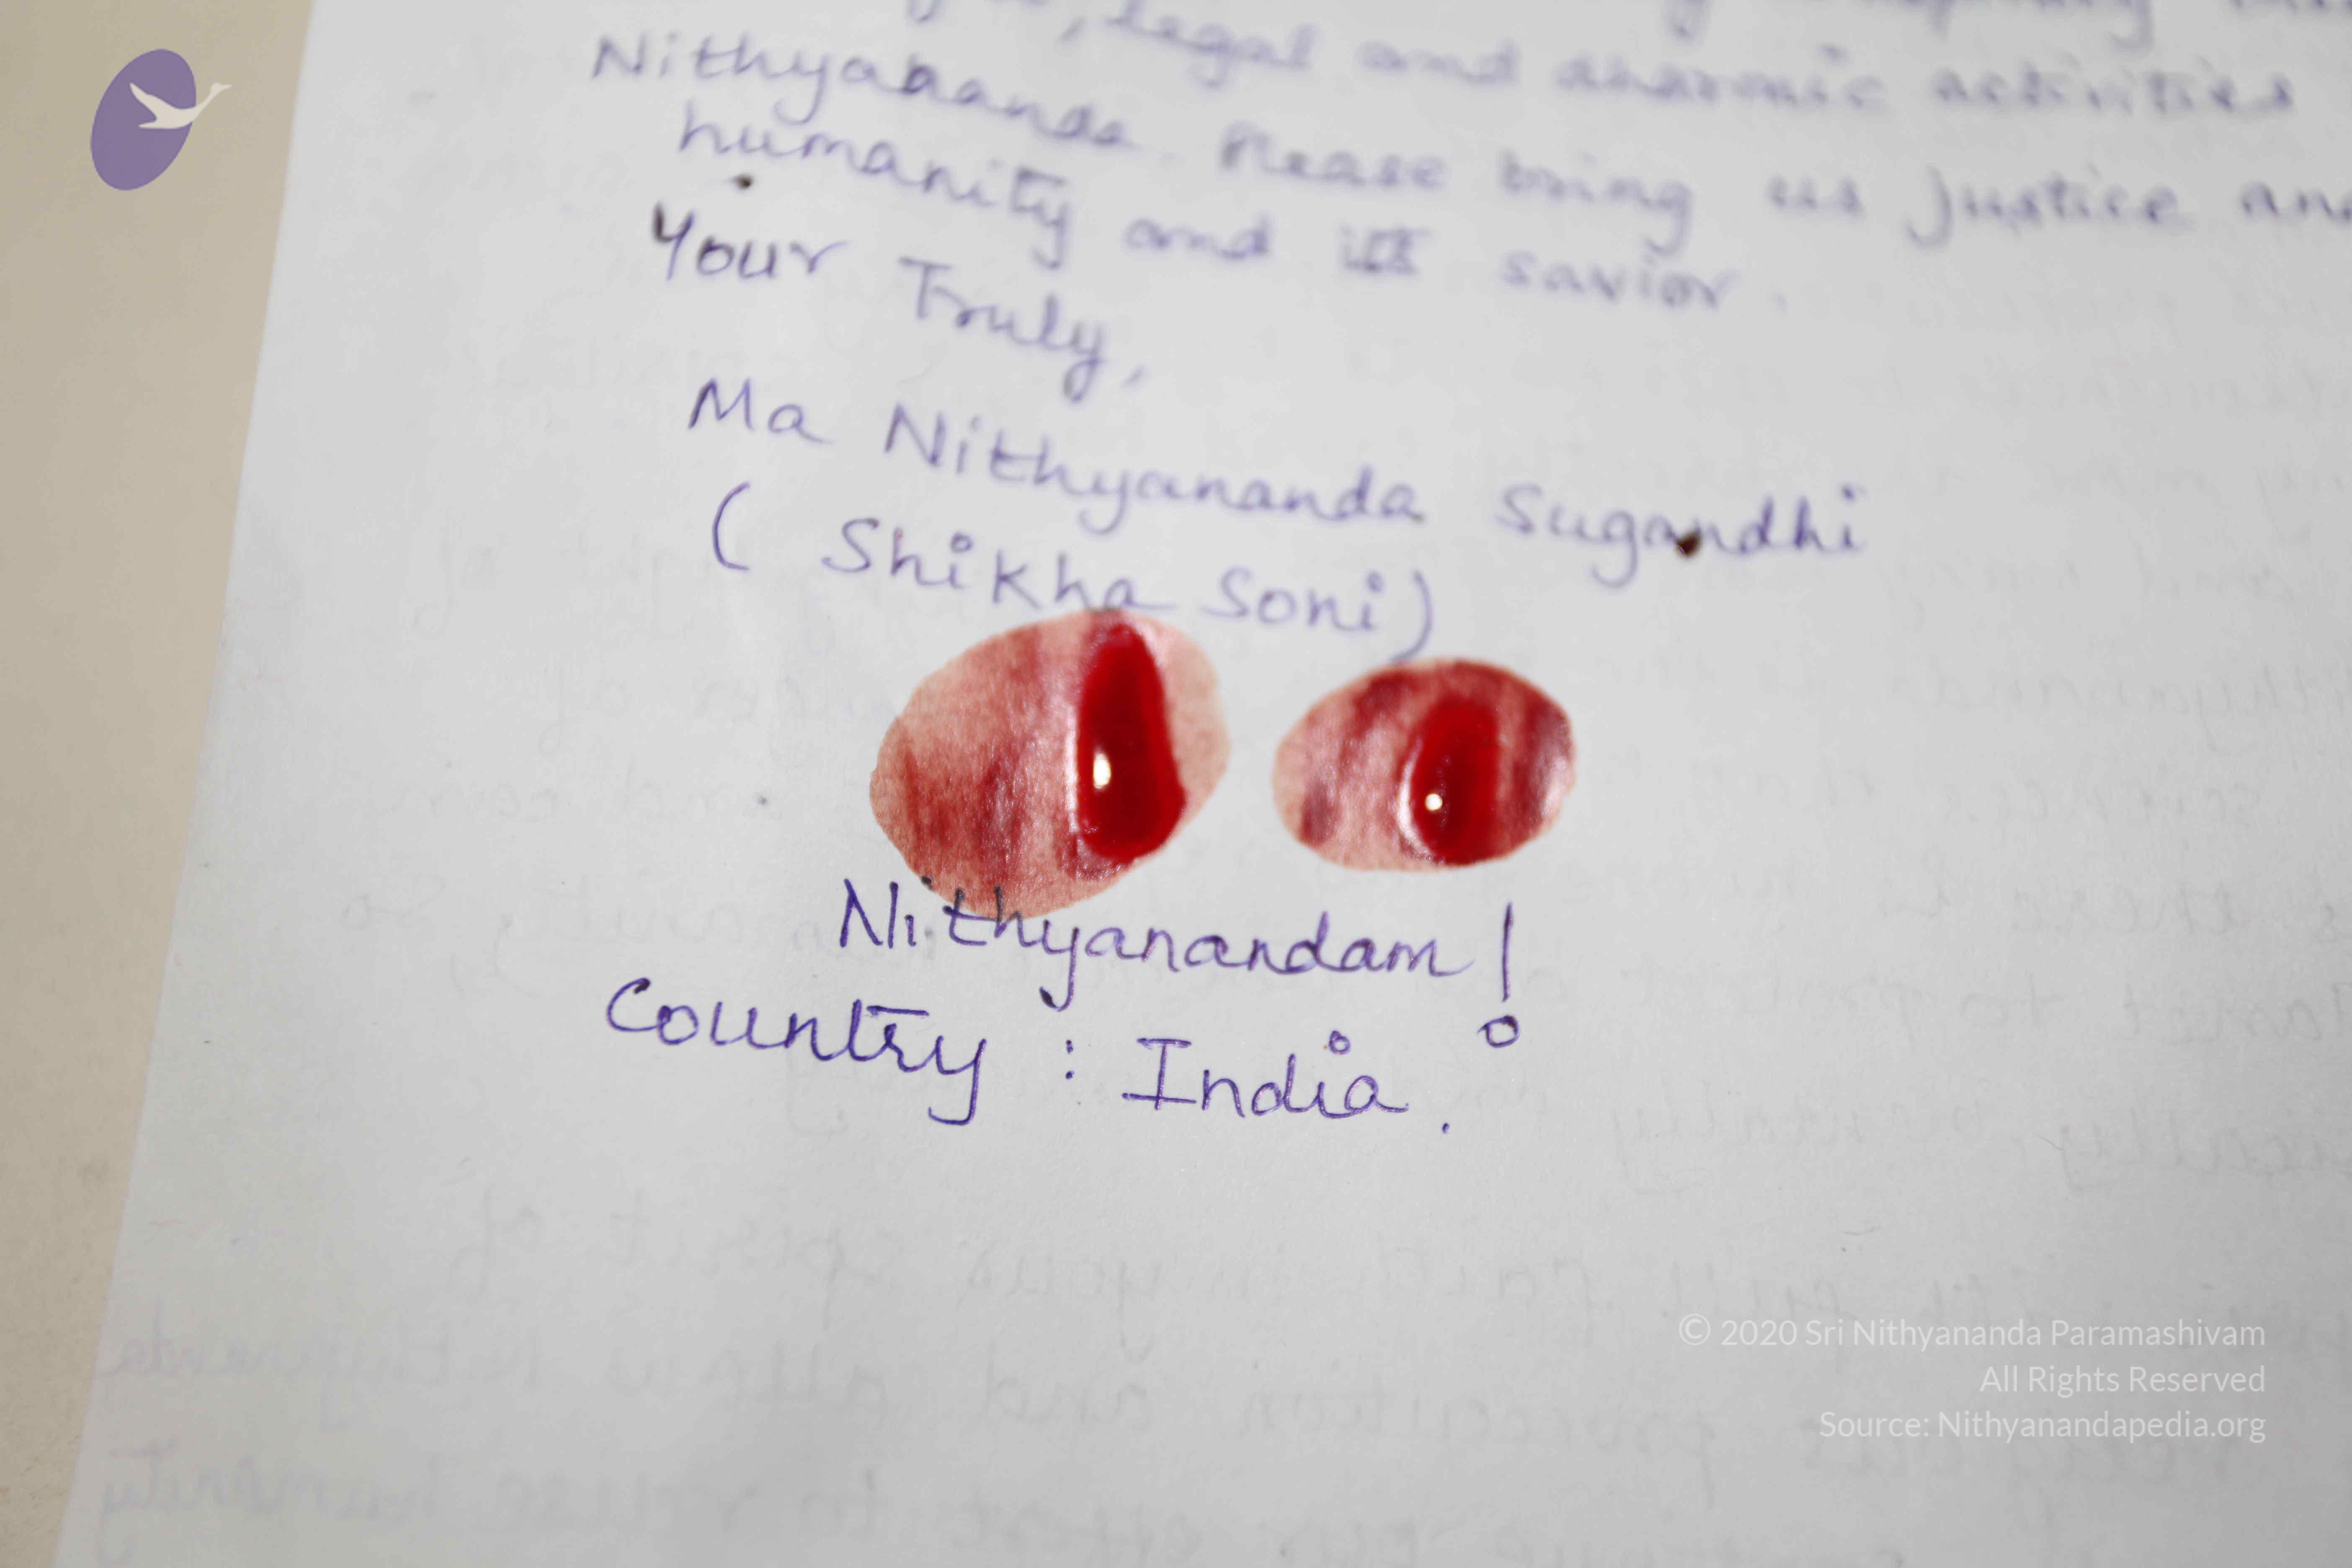 , legal and dharmic activities
Nithyananda. Please bring us justice and
humanity and its savior.
Your Truly,
Ma Nithyananda Sugandhi
( Shikha Soni)
Nithyanandam!
Country : India.
© 2020 Sri Nithyananda Paramashivam
All Rights Reserved
Source: Nithyanandapedia.org